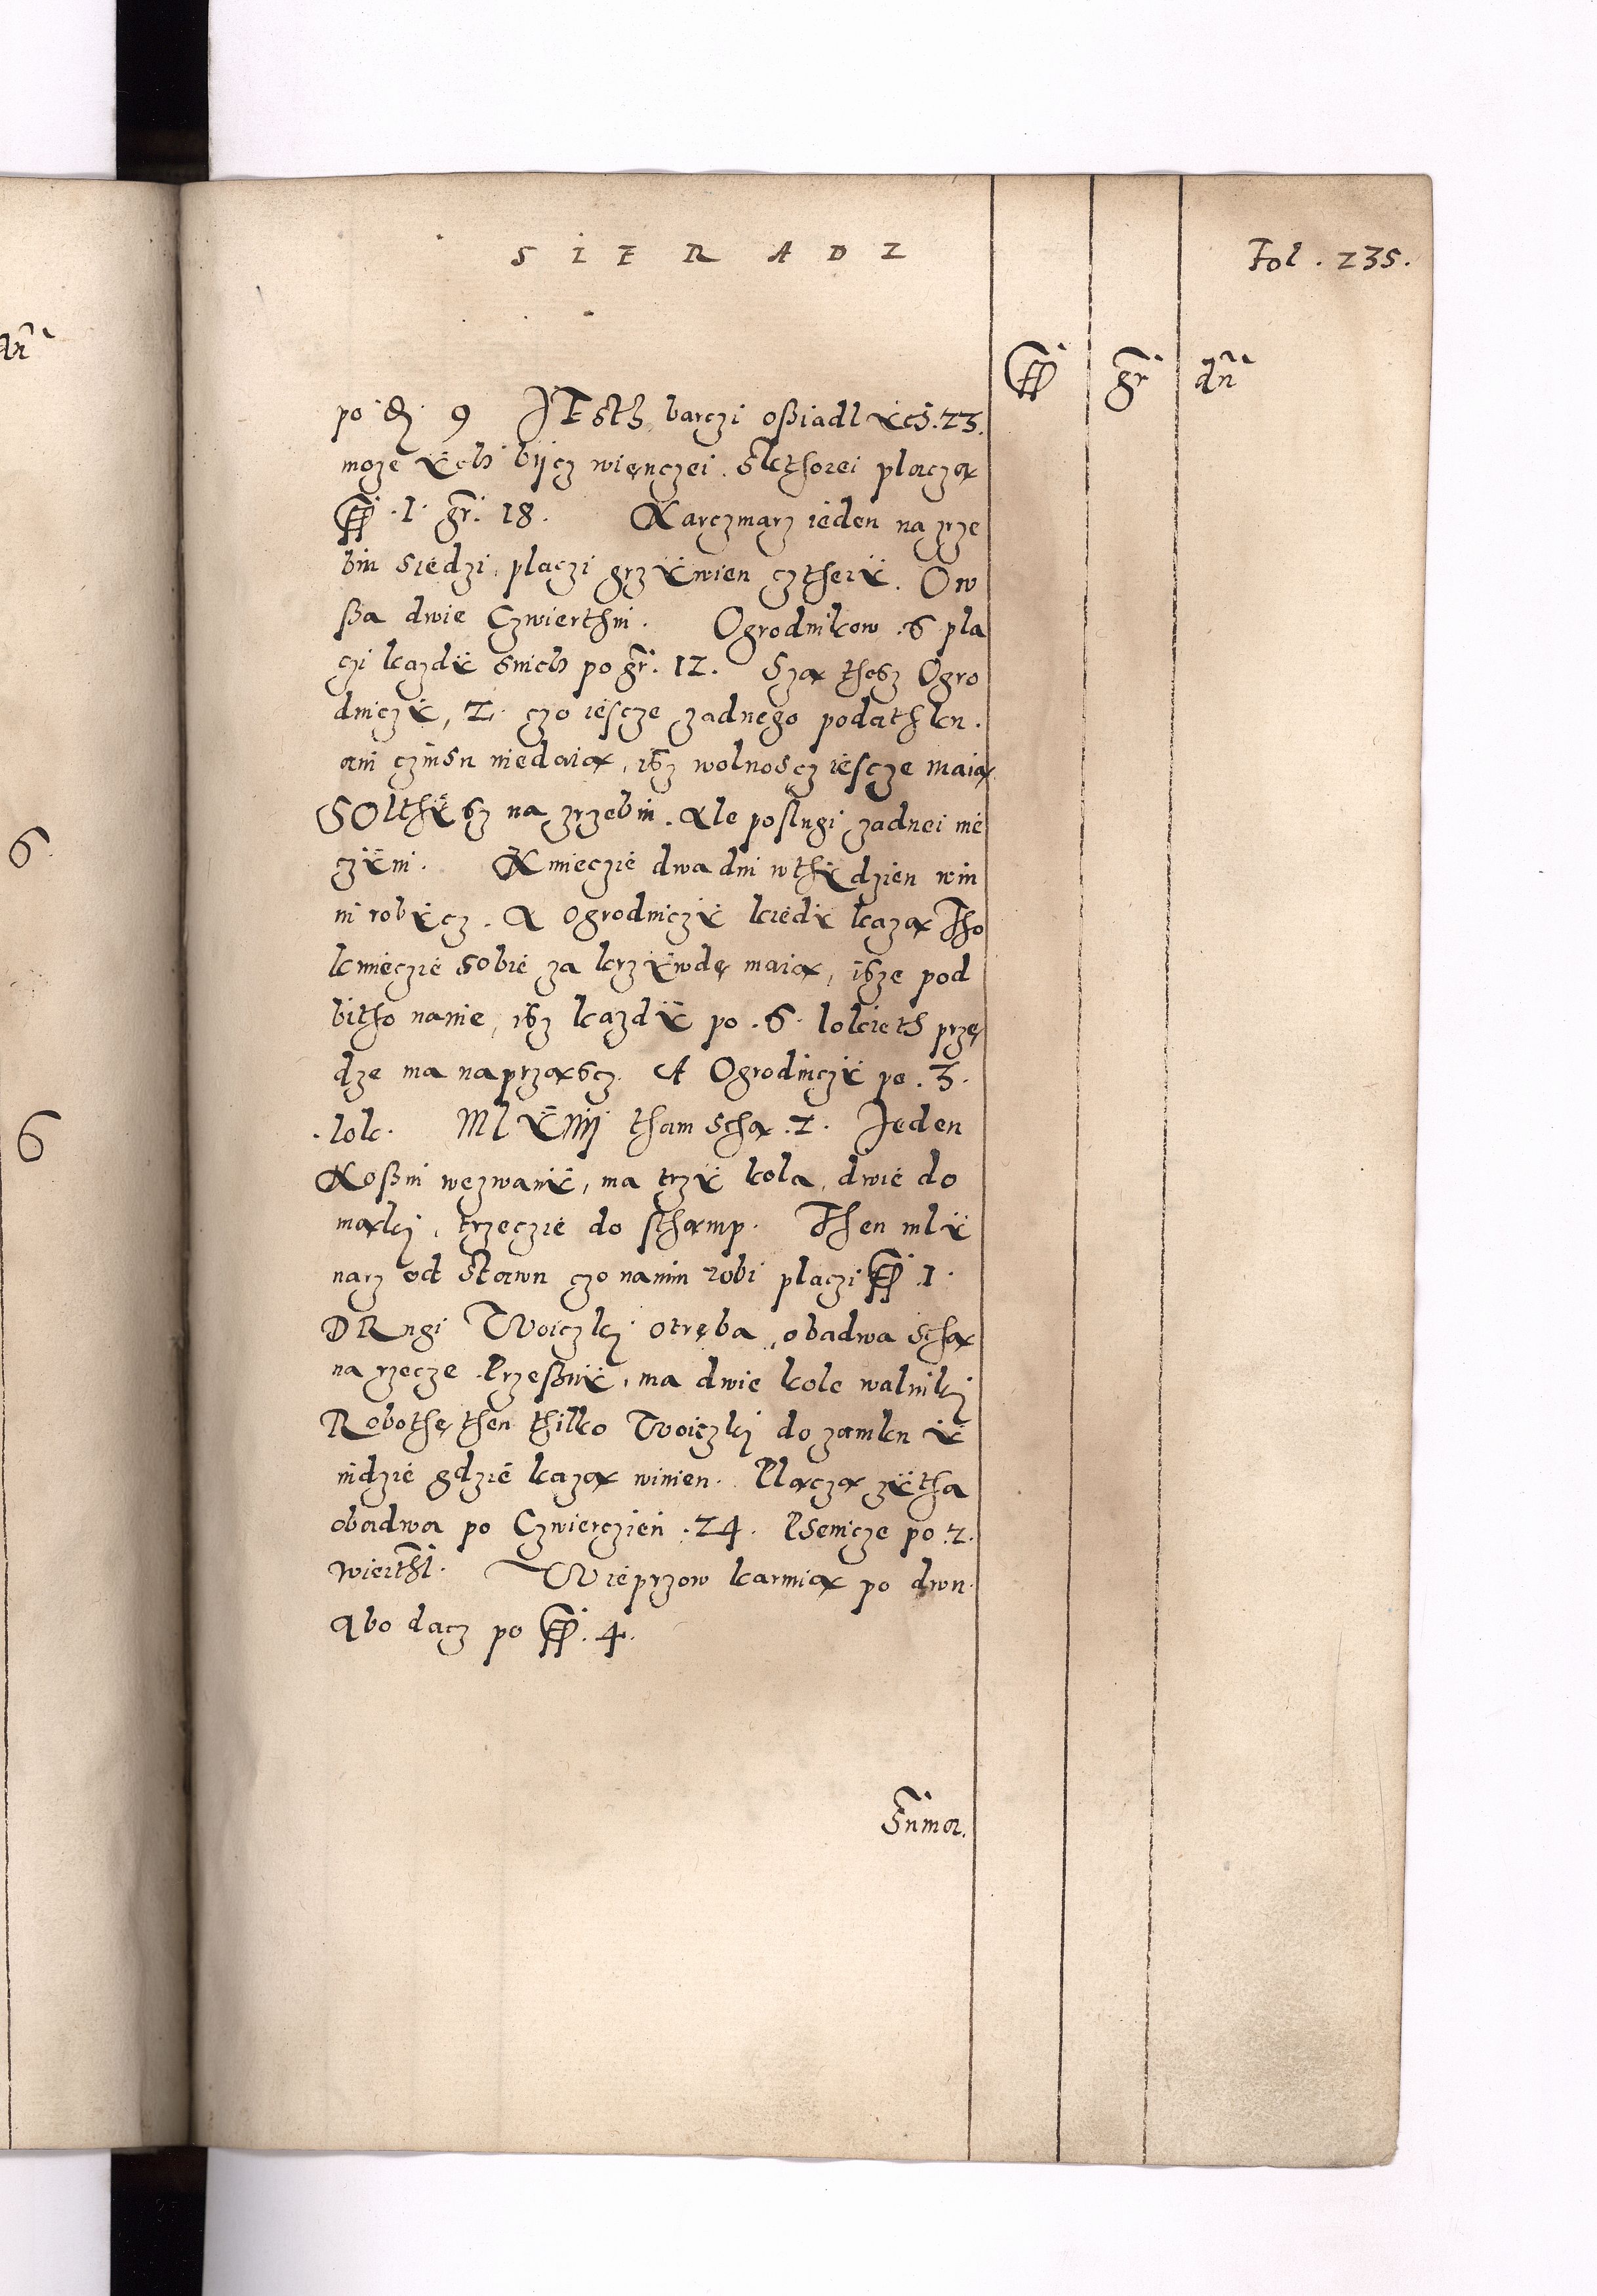 SIERADZ
Fol. 235.
fl gr dn
po d. 9 JEsth barczi oßiadlÿch. 23.
może ÿch bÿcz więnczei. Skthorei placzą
fl. 1. gr. 18. Karczmarz ieden na zrze
biu siedzi, placzi grzÿwien cztherÿ. Ow
ßa dwie Czwierthni. Ogrodnikow .6 pla
czi kazdÿ snich po gr. 12. Szą thesz Ogro
dniczÿ, 2. czo iescze zadnego podathku.
ani czinsu niedaią, isz wolnoscz iescze maią
SOlthÿsz na zrzebiu. Ale poslugi zadnei nie
czÿni. Kmieczie dwa dni wthÿdzien win
ni robÿcz. A Ogrodniczÿ kiedÿ każą Tho
kmieczie sobie za krzÿwdę maią, isze pod
bitho nanie, isz kazdÿ po .6. lokieth przę
dze ma naprząscz. A Ogrodniczÿ po .3.
.lok. MlÿNij tham schą .2. Jeden
Koßni wezwanÿ, ma trzÿ kola, dwie do
mąkj, trzeczie do sthęmp. Then mlÿ
narz od stawu czo nanim robi placzi fl .1.
DRugi Woiczkj otręba, obadwa schą
na rzecze Przeßnÿ, ma dwie kole walnikj
Robothę then thilko Woiczkj do zamku ÿ
indzie gdzie każą winien. Placzą zÿtha
obadwa po Czwierczień .24. Psenicze po .2.
wierthl. Wieprzow karmią po dwu.
Abo dacz po fl. 4.
Suma.
6
6